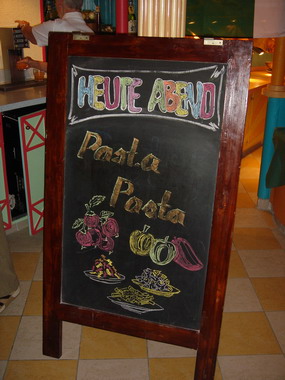 HEUTE ABEND
Pasta
Pasta